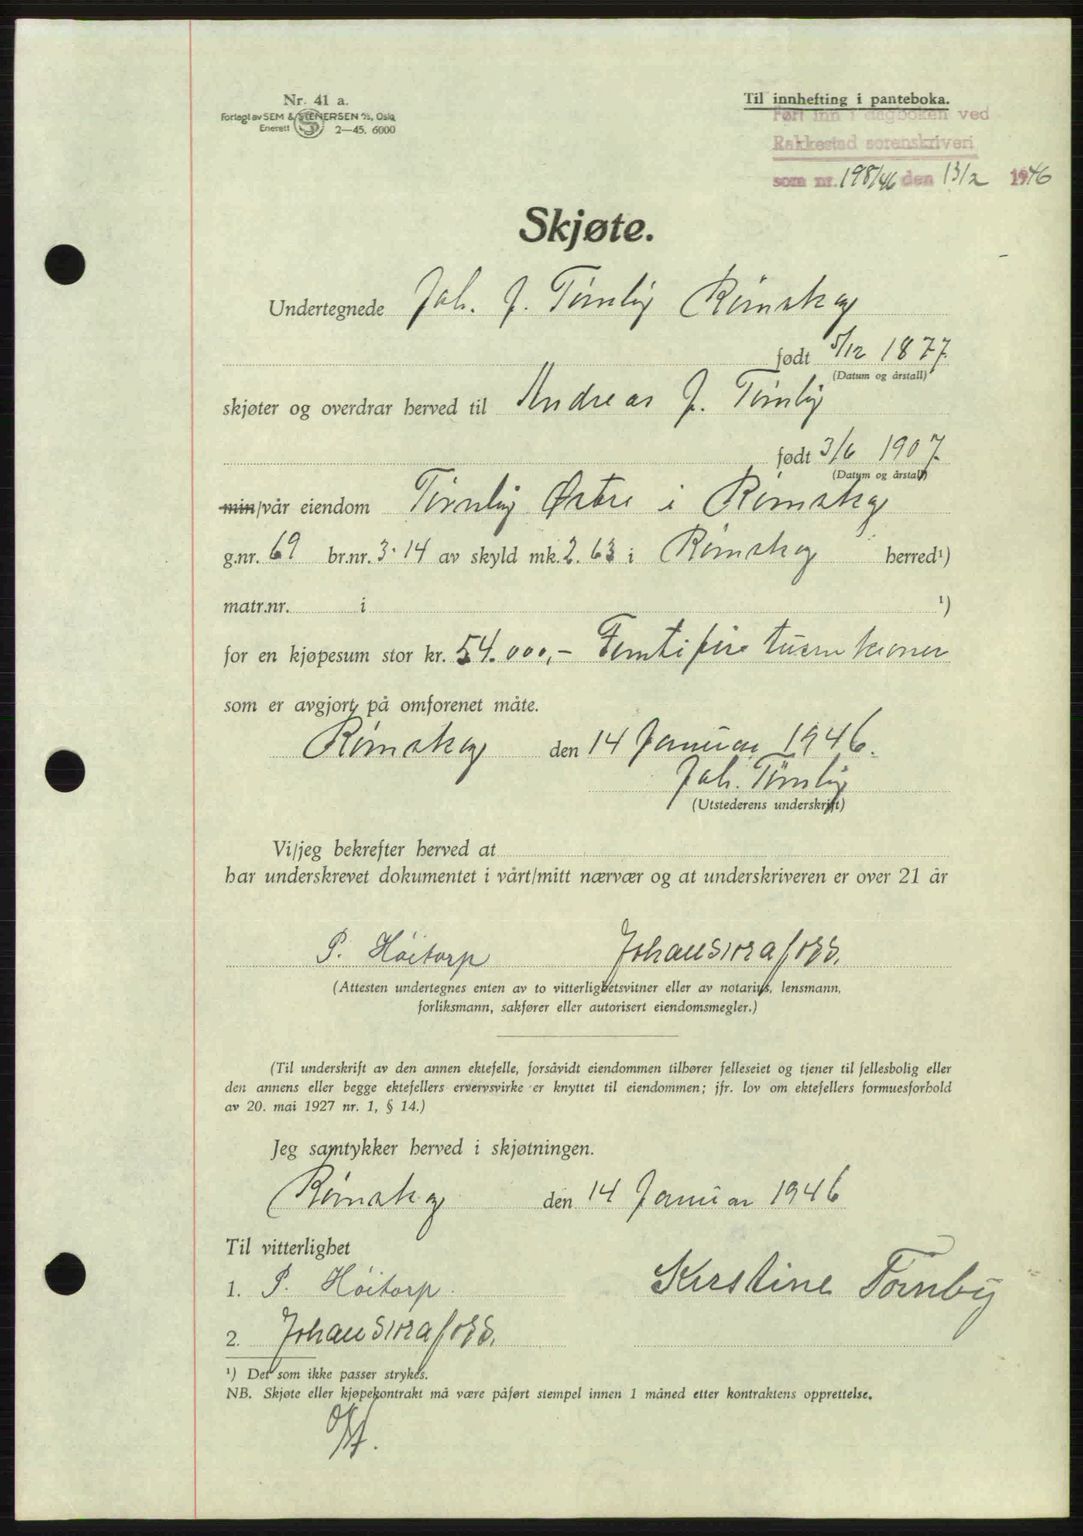 Nr. 41 a.
Forlagt av SEM & STENERSEN A/S, Oslo
Enerett 2—45. 6000
Til innhefting i panteboka.
Ført inn i dagboken ved
Rakkestad sorenskriveri
som nr. 198/46 den 13/2 1946
Skjøte.
Undertegnede Joh. J. Tørnby Rømskog
født 5/12 1877
(Datum og årstall)
skjøter og overdrar herved til Andreas J. Tørnby
født 3/6 1907
(Datum og årstall)
min/vår eiendom Tørnby Østre i Rømskog
g.nr. 69 br.nr. 3.14 av skyld mk. 2.63 i Rømskog herred¹)
matr.nr. i ¹)
for en kjøpesum stor kr. 54.000,- Femtifire tusen kroner
som er avgjort på omforenet måte.
Rømskog den 14 Januar 1946.
Joh. Tørnby
(Utstederens underskrift)
Vi/jeg bekrefter herved at
har underskrevet dokumentet i vårt/mitt nærvær og at underskriveren er over 21 år
P. Høitorp Johan
(Attesten undertegnes enten av to vitterlighetsvitner eller av notarius, lensmann,
forliksmann, sakfører eller autorisert eiendomsmegler.)
(Til underskrift av den annen ektefelle, forsåvidt eiendommen tilhører felleseiet og tjener til fellesbolig eller
den annens eller begge ektefellers ervervsvirke er knyttet til eiendommen; jfr. lov om ektefellers formuesforhold
av 20. mai 1927 nr. 1, § 14.)
Jeg samtykker herved i skjøtningen.
Rømskog den 14 Januar 1946
Til vitterlighet
1. P. Høitorp.
Kirstine Tørnby
2. Johan
¹) Det som ikke passer strykes.
NB. Skjøte eller kjøpekontrakt må være påført stempel innen 1 måned etter kontraktens opprettelse.